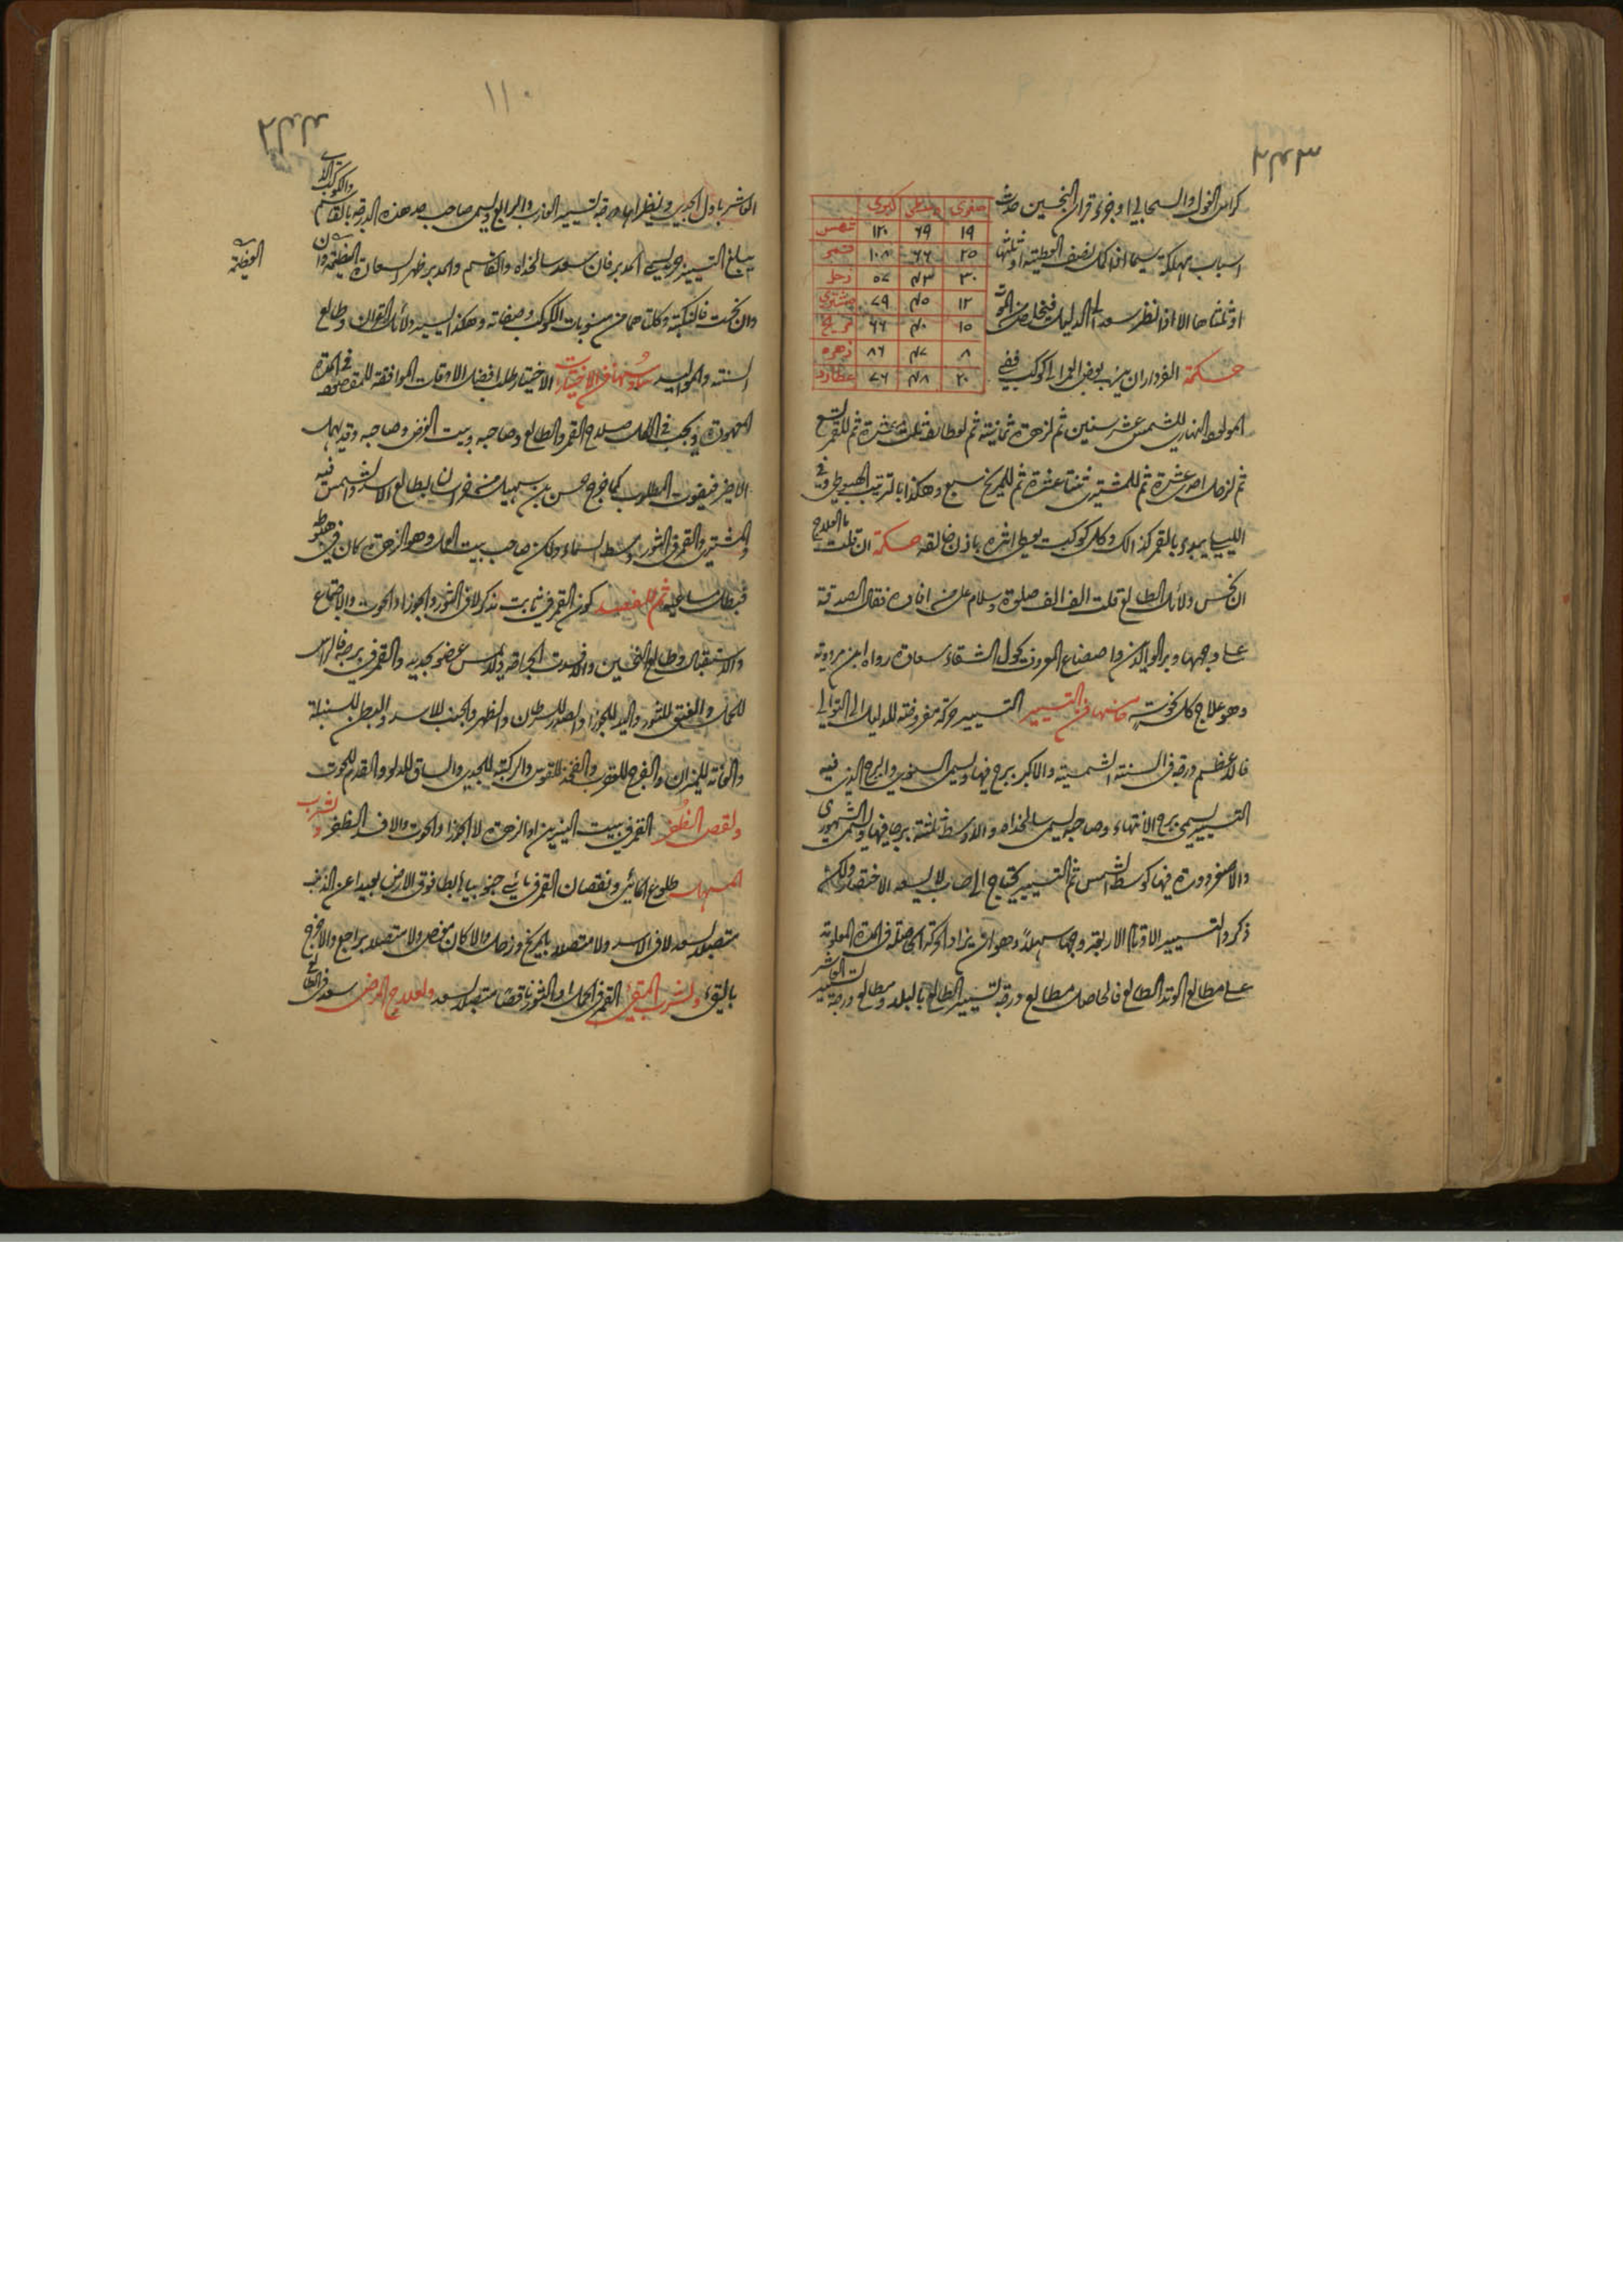 كراس الغول والسحابي او جزء قران النحسين حدث
صغرى وسطى كبرى
١٩ ٦٩ ١٢٠ شمس
٢٥ ٦٦ ١٠٨ قمر
٣٠ ٤٣ ٥٧ زحل
١٢ ٤٥ ٧٩ مشترى
١٥ ٤٠ ٦٦ مريخ
٨ ٤٧ ٨٦ زهره
٢٠ ٤٨ ٧٦ عطارد
اسباب مهلكة سيما اذا كان نصف العطية او ثلثها
او ثلثاها الا اذا نظر سعد الى الدليل فيخلص من الموت
حكمة الفرداران ينسب بعض العمر الى كوكب ففي
المولود النهارى للشمس عشر سنين ثم لزهرة ثمانية ثم لعطارد ثلث عشرة ثم للقمر تسع
ثم لزحل احدى عشرة ثم للمشترى ثنتا عشرة ثم للمريخ سبع وهكذا بالترتيب الهبوطى وفى
الليلى يبدء بالقمر كذالك وكل كوكب يعطى اثره باذن خالقه حكمة ان قلت ما العلاج
ان نحس دلائل الطالع قلت الف الف صلوة وسلام على من افاده فقال الصدقة
على وجهها وبر الوالدين واصطناع المعروف يحول الشقاء سعادة رواه ابن مردويه
وهو علاج كل نحوسة ومنها فى التسيير التسيير حركة مفروضة للدليل الى التوالى
فالاعظم درجة فى السنة الشمسية والاكبر برج فيها ويسمى السنوى والبرج الذى فيه
التسيير يسمى برج الانتهاء وصاحبه يسمى سالخداه والاوسط ثلثة برجا فيها ويسمى الشهورى
والاصغر دورة فيها كوسط الشمس ثم التسيير يحتاج الى حساب لا يسعه الاختصار ولكن
ذكروا لتسيير الاوتاد الاربعة وجها سهلا وهو ان يزاد الحركة الحاصلة فى المدة المعلومة
على مطالع الوتد الطالع فالحاصل مطالع درجة تسيير الطالع بالبلد ومطالع درجة تسيير العاشر
١١٠
العاشر باول الجدى ونظيراهما درجة تسيير الغارب والرابع ويسمى صاحب حد هذه الدرجة بالقاسم والكوكب الذى
يبلغ التسيير جرمه يسمى المدبر فان سعد سالخداه والقاسم والمدبر ظهر السعادة العظيمة وان
وان نحست فالنكبة وكلتاهما من منسوبات الكوكب وصفاته وهكذا تسيير دلائل القران وطالع
السنة والمواليد ومنها فى الاختيارات الاختيار طلب افضل الاوقات الموافقة للمقصود فى المدة
المعهودة ويجب فى الكل صلاح القمر والطالع وصاحبه وبيت الغرض وصاحبه وقد يهمل
الاخير فيفوت المطلوب كما خرج حسن بن سهيل من خراسان لطالع الاسد والشمس فيه
والمشترى والقمر فى الثور وسط السماء ولكن صاحب بيت العمل وهو الزهرة كان فى هبوطه
فبطل مساعيه ثم للفصد كون القمر فى ثابت نذكر لا فى الثور والجوزاء والحوت والاجتماع
والاستقبال وطالع النحسين والافسدت الجراحة ولا يمس عضو بحديد والقمر فى برجه فالراس
للحمل والعنق للثور واليد للجوزا والصدر للسرطان والظهر والجنب للاسد والبطن للسنبلة
والعانة للميزان والفرج للعقرب والفخذ للقوس والركبة للجدى والساق للدلو والقدم للحوت
ولقص الظفر القمر فى بيت النيرين او الزهرة لا الجوزا والحوت والا فسد الظفر ولشرب
المسهل طلوع المائى ونقصان القمر فى مائى جنوبيا هابطا فوق الارض بعيدا عن الذنب
متصلا بسعد لا فى الاسد ولا متصلا بالمريخ وزحل والا كان مغص ولا متصلا براجع والا خرج
بالقىء ولشرب المقى القمر فى الحمل او الثور ناقصا متصلا بسعد ولعلاج المرض سعد فى الطالع
العظيمة